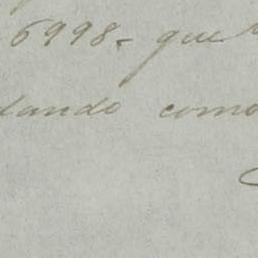 6998- que
dando como